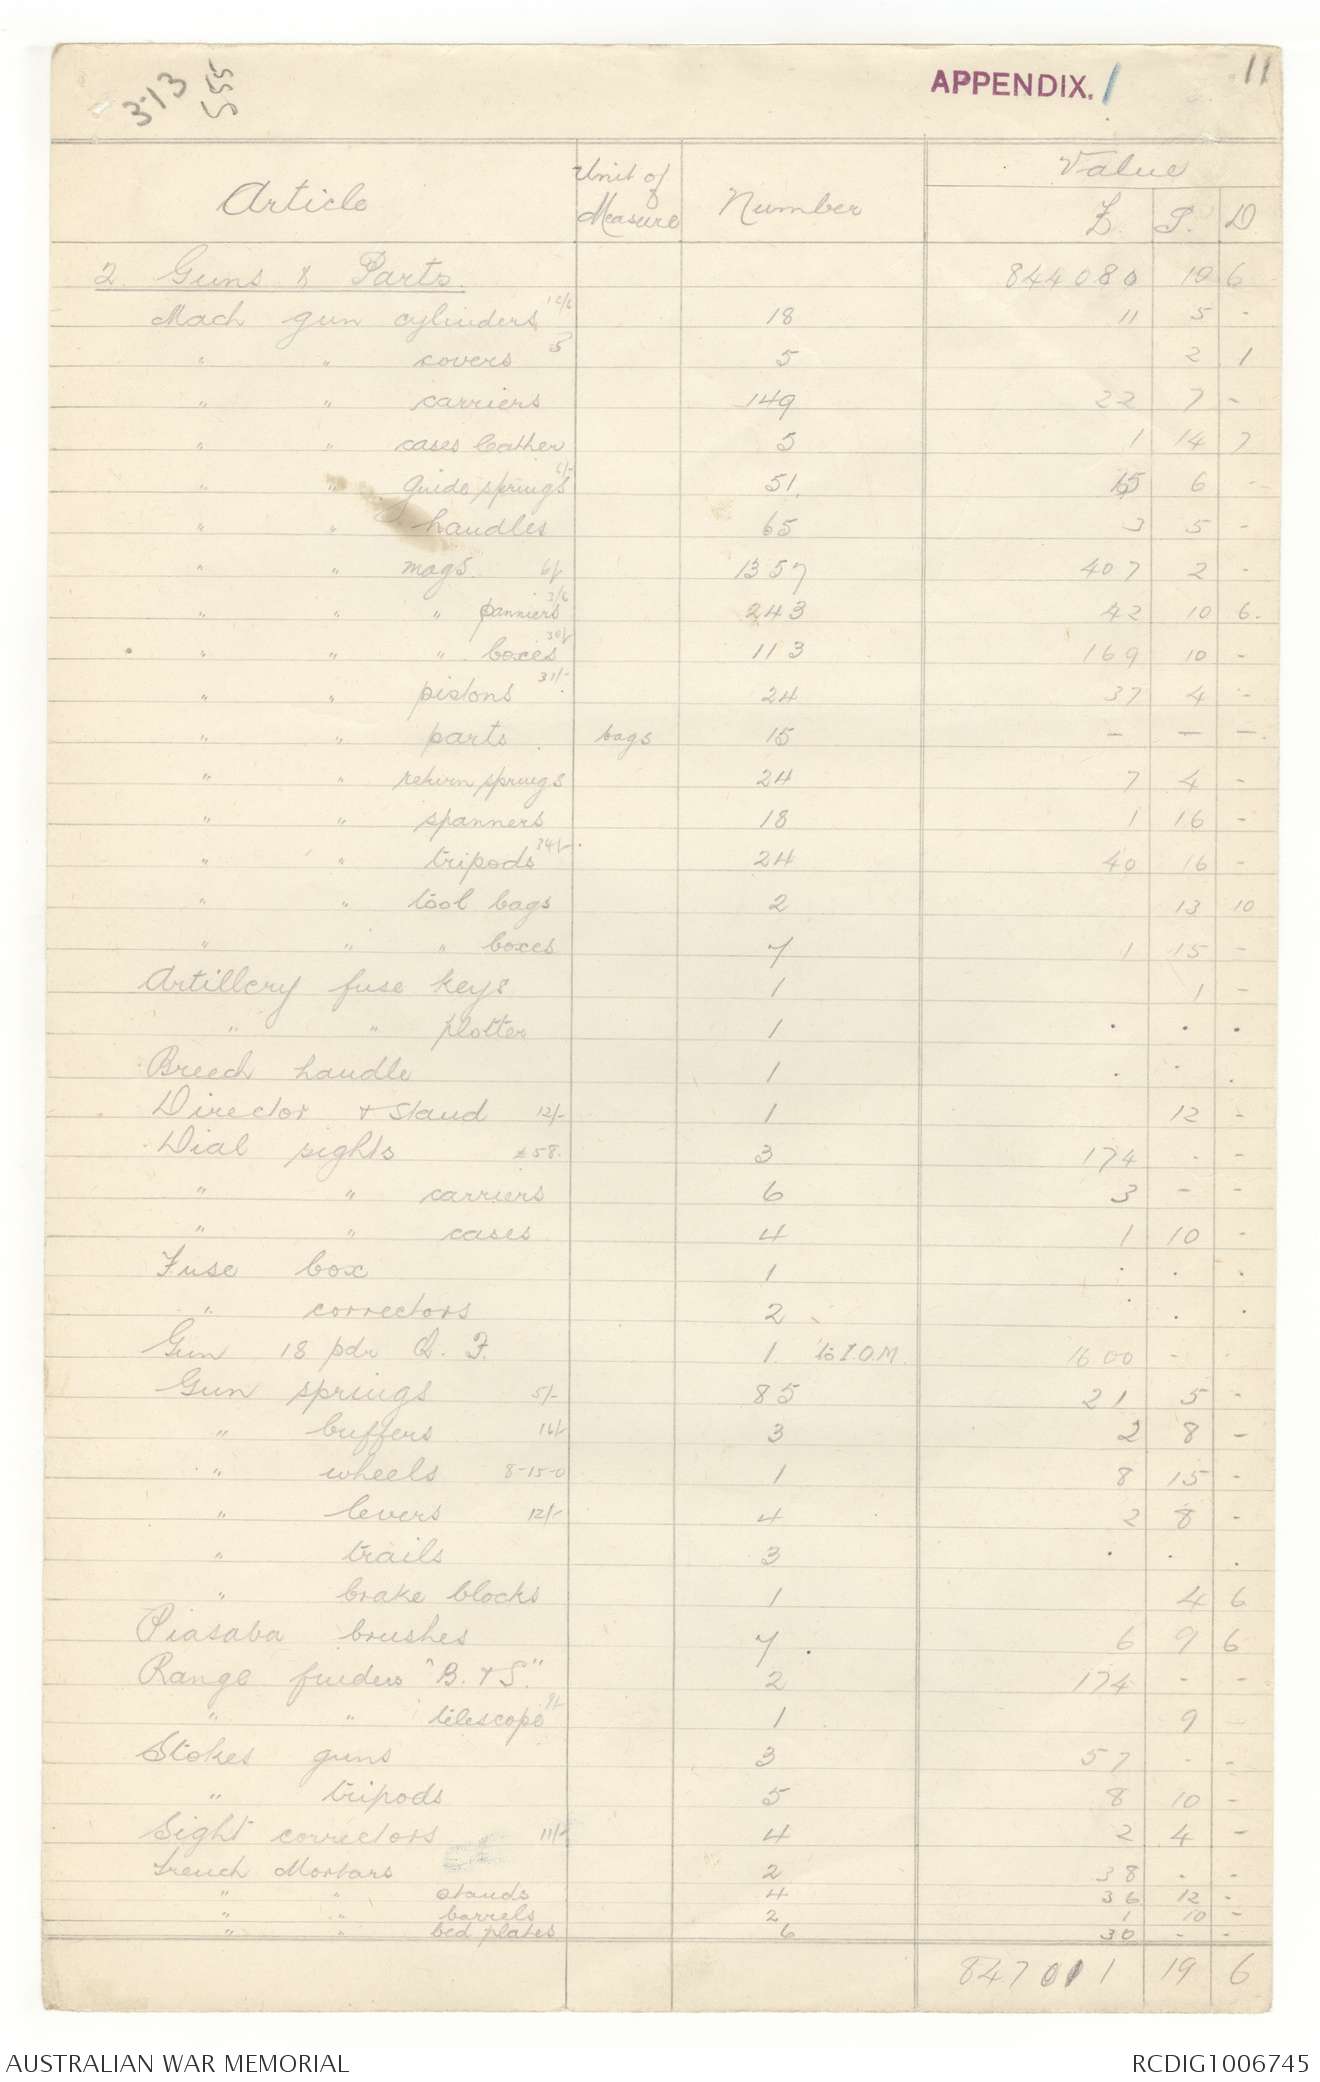 3·13
555
APPENDIX. 1
11
Article Unit of Measure Number Value
£. S. D
2 Guns & Parts. 844080 10 6
Mach gun cylinders 12/6 18 11 5 -
" " covers 5 5 2 1
" " carriers 149 22 7 -
" " cases leather 5 1 14 7
" " guide springs 6/- 51 15 6 -
" " handles 65 3 5 -
" " mags. 6/- 1357 407 2 -
" " " panniers 3/6 243 42 10 6.
" " " boxes 30/- 113 169 10 -
" " pistons 31/- 24 37 4 -
" " parts bags 15 - - -
" " return springs 24 7 4 -
" " spanners 18 1 16 -
" " tripods 34/- 24 40 16 -
" " tool bags 2 13 10
" " " boxes 7 1 15 -
Artillery fuse keys 1 1 -
" " plotter 1 . . .
Breech handle 1 . . .
Director & stand 12/- 1 12 -
Dial sights £58. 3 174 - -
" " carriers 6 3 - -
" " cases 4 1 10 -
Fuse box 1 . . .
" correctors 2 . . .
Gun 18 pdr Q. F. 1 to I.O.M. 1600 - .
Gun springs 5/- 85 21 5 -
" buffers 16/- 3 2 8 -
" wheels 8-15-0 1 8 15 -
" levers 12/- 4 2 8 -
" trails 3 . . .
" brake blocks 1 4 6
Piasaba brushes 7 . 6 9 6
Range finders "B. & S." 2 174 - -
" " telescope 9/- 1 9 -
Stokes guns 3 57 - -
" tripods 5 8 10 -
Sight correctors 11/- 4 2 4 -
Trench Mortars 2 38 - -
" " stands 4 36 12 -
" " barrels 2 1 10 -
" " bed plates 6 30 - -
847011 19 6
AUSTRALIAN WAR MEMORIAL RCDIG1006745